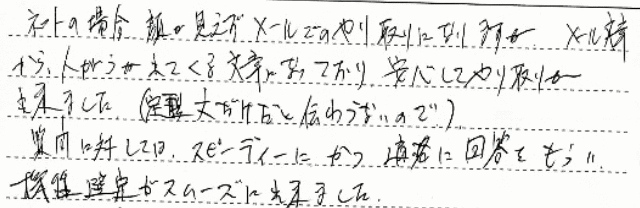 ネットの場合 顔が見えず メールでのやり取りになりますが、メール文章
から、人がらが みえてくる文章になっており、安心してやり取りが
出来ました。(定型文だけだと伝わらないので)
質問に対しては、スピーディーに かつ 適格に 回答をもらい、
機種選定がスムーズに出来ました。